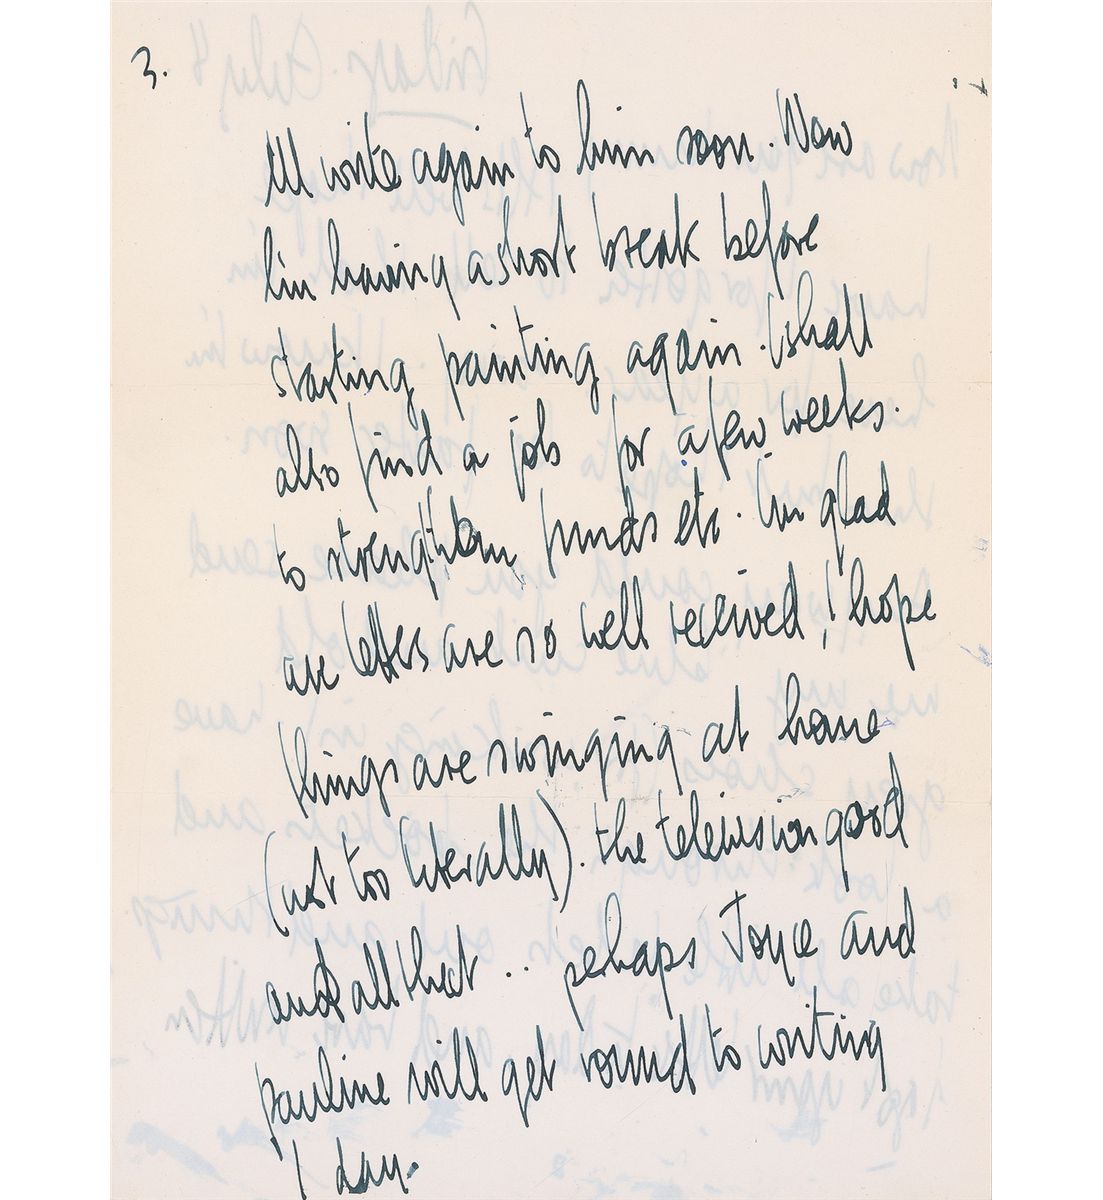 3.
I'll write again to him soon. Now
I'm having a short break before
starting painting again. I shall
also find a job for a few weeks.
to strengthen funds etc. I'm glad
are letters are so well received, I hope
things are swinging at home
(not too literally). the television good
and all that .. perhaps Joyce and
pauline will get round to writing
1 day.